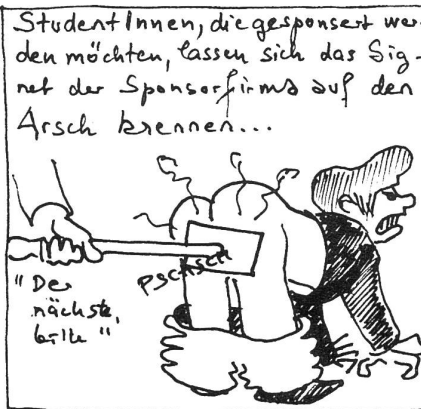 StudentInnen, die gesponsert wer-
den möchten, lassen sich das Sig-
net der Sponsorfirma auf den
Arsch brennen...
PSCHSCH
"Der
nächste,
bitte"